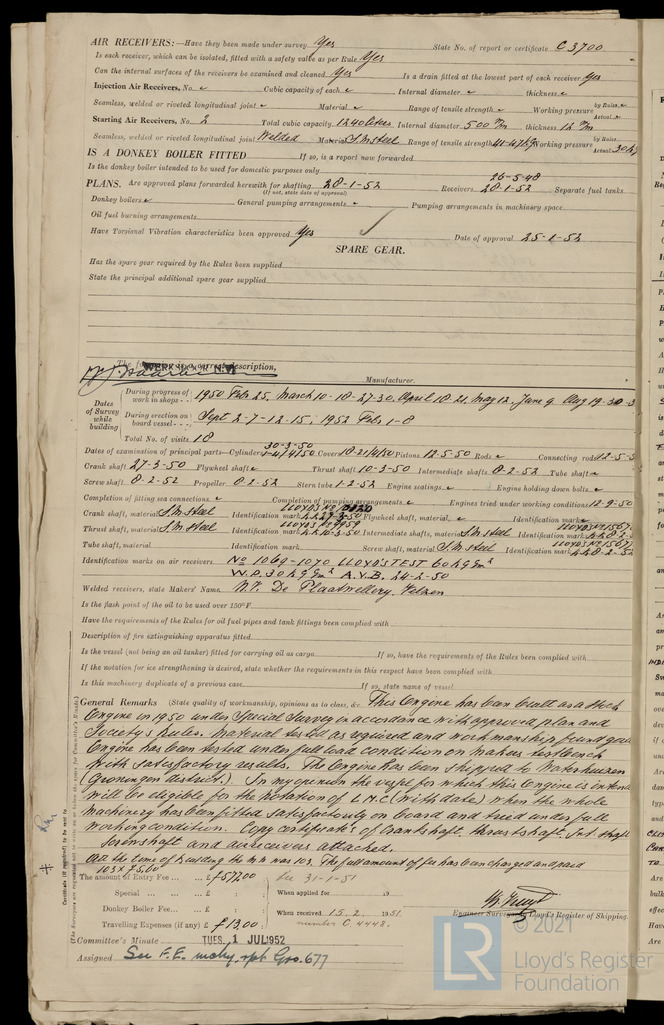 AIR RECEIVERS:—Have they been made under survey Yes State No. of report or certificate C 3700
Is each receiver, which can be isolated, fitted with a safety valve as per Rule Yes
Can the internal surfaces of the receivers be examined and cleaned Yes Is a drain fitted at the lowest part of each receiver Yes
Injection Air Receivers, No. Cubic capacity of each Internal diameter thickness
Seamless, welded or riveted longitudinal joint Material Range of tensile strength Working pressure by Rules Actual
Starting Air Receivers, No. 2 Total cubic capacity 1240 liters Internal diameter 500 m/m thickness 12 m/m
Seamless, welded or riveted longitudinal joint Welded Material S.M. steel Range of tensile strength 41-47 kg Working pressure by Rules Actual 30 k
IS A DONKEY BOILER FITTED If so, is a report now forwarded
Is the donkey boiler intended to be used for domestic purposes only
PLANS. Are approved plans forwarded herewith for shafting 28-1-52 Receivers 26-5-48 28-1-52 Separate fuel tanks
(If not, state date of approval)
Donkey boilers General pumping arrangements Pumping arrangements in machinery space
Oil fuel burning arrangements
Have Torsional Vibration characteristics been approved Yes Date of approval 25-1-52
SPARE GEAR.
Has the spare gear required by the Rules been supplied
State the principal additional spare gear supplied
The correct description,
Manufacturer.
Dates of Survey while building
During progress of work in shops 1950 Feb 25, March 10-18-27-30, April 18-21, May 12, June 9, Aug 19-30
During erection on board vessel Sept 2-7-12-15, 1952 Feb 1-8
Total No. of visits 18
Dates of examination of principal parts—Cylinders 30-3-50 1-4/4/50 Covers 18-21/4/50 Pistons 12-5-50 Rods Connecting rods 12-5-5
Crank shaft 27-3-50 Flywheel shaft Thrust shaft 10-3-50 Intermediate shafts 8-2-52 Tube shaft
Screw shaft 8-2-52 Propeller 8-2-52 Stern tube 1-2-52 Engine seatings Engine holding down bolts
Completion of fitting sea connections Completion of pumping arrangements Engines tried under working conditions 12-9-50
Crank shaft, material S.M. steel Identification mark LLOYDS No 27-3-50 Flywheel shaft, material Identification mark
Thrust shaft, material S.M. steel Identification mark LLOYDS No 9959 10-3-50 Intermediate shafts, material S.M. steel Identification mark LLOYDS No 1567 8-2-52
Tube shaft, material Identification mark Screw shaft, material S.M. steel Identification mark LLOYDS No 1567 8-2-52
Identification marks on air receivers No 1069-1070 LLOYD'S TEST 60 kg cm²
W.P. 30 kg cm² A.Y.B. 24-2-50
Welded receivers, state Makers' Name N.V. De Plaatwellery, Velsen
Is the flash point of the oil to be used over 150°F.
Have the requirements of the Rules for oil fuel pipes and tank fittings been complied with
Description of fire extinguishing apparatus fitted
Is the vessel (not being an oil tanker) fitted for carrying oil as cargo If so, have the requirements of the Rules been complied with
If the notation for ice strengthening is desired, state whether the requirements in this respect have been complied with
Is this machinery duplicate of a previous case If so, state name of vessel
General Remarks (State quality of workmanship, opinions as to class, &c. This Engine has been built as a stock
Engine in 1950 under Special Survey in accordance with approved plan and
Society's Rules. Material tested as required and workmanship found good
Engine has been tested under full load condition on makers testbench
with satisfactory results. The Engine has been shipped to Waterhuizen
(Groningen district). In my opinion the vessel for which this Engine is intend
will be eligible for the notation of L.M.C. (with date) when the whole
machinery has been fitted satisfactorily on board and tried under full
working condition. Copy certificates of Crankshaft, thrustshaft, Int. shaft
Screwshaft and airreceivers attached.
At the time of building the M.N. was 103. The full amount of fee has been charged and paid
103 x £5.00
The amount of Entry Fee £ 577.00 Dec 31-1-51
Special £ When applied for 19
Donkey Boiler Fee £
When received 15.2. 1951.
Travelling Expenses (if any) £ 13.00 number C. 4448.
Engineer Surveyor to Lloyd's Register of Shipping.
Committee's Minute TUES. 1 JUL 1952
Assigned See F.E. mchy. rpt Gro. 677
© 2021
LR
Lloyd's Register
Foundation